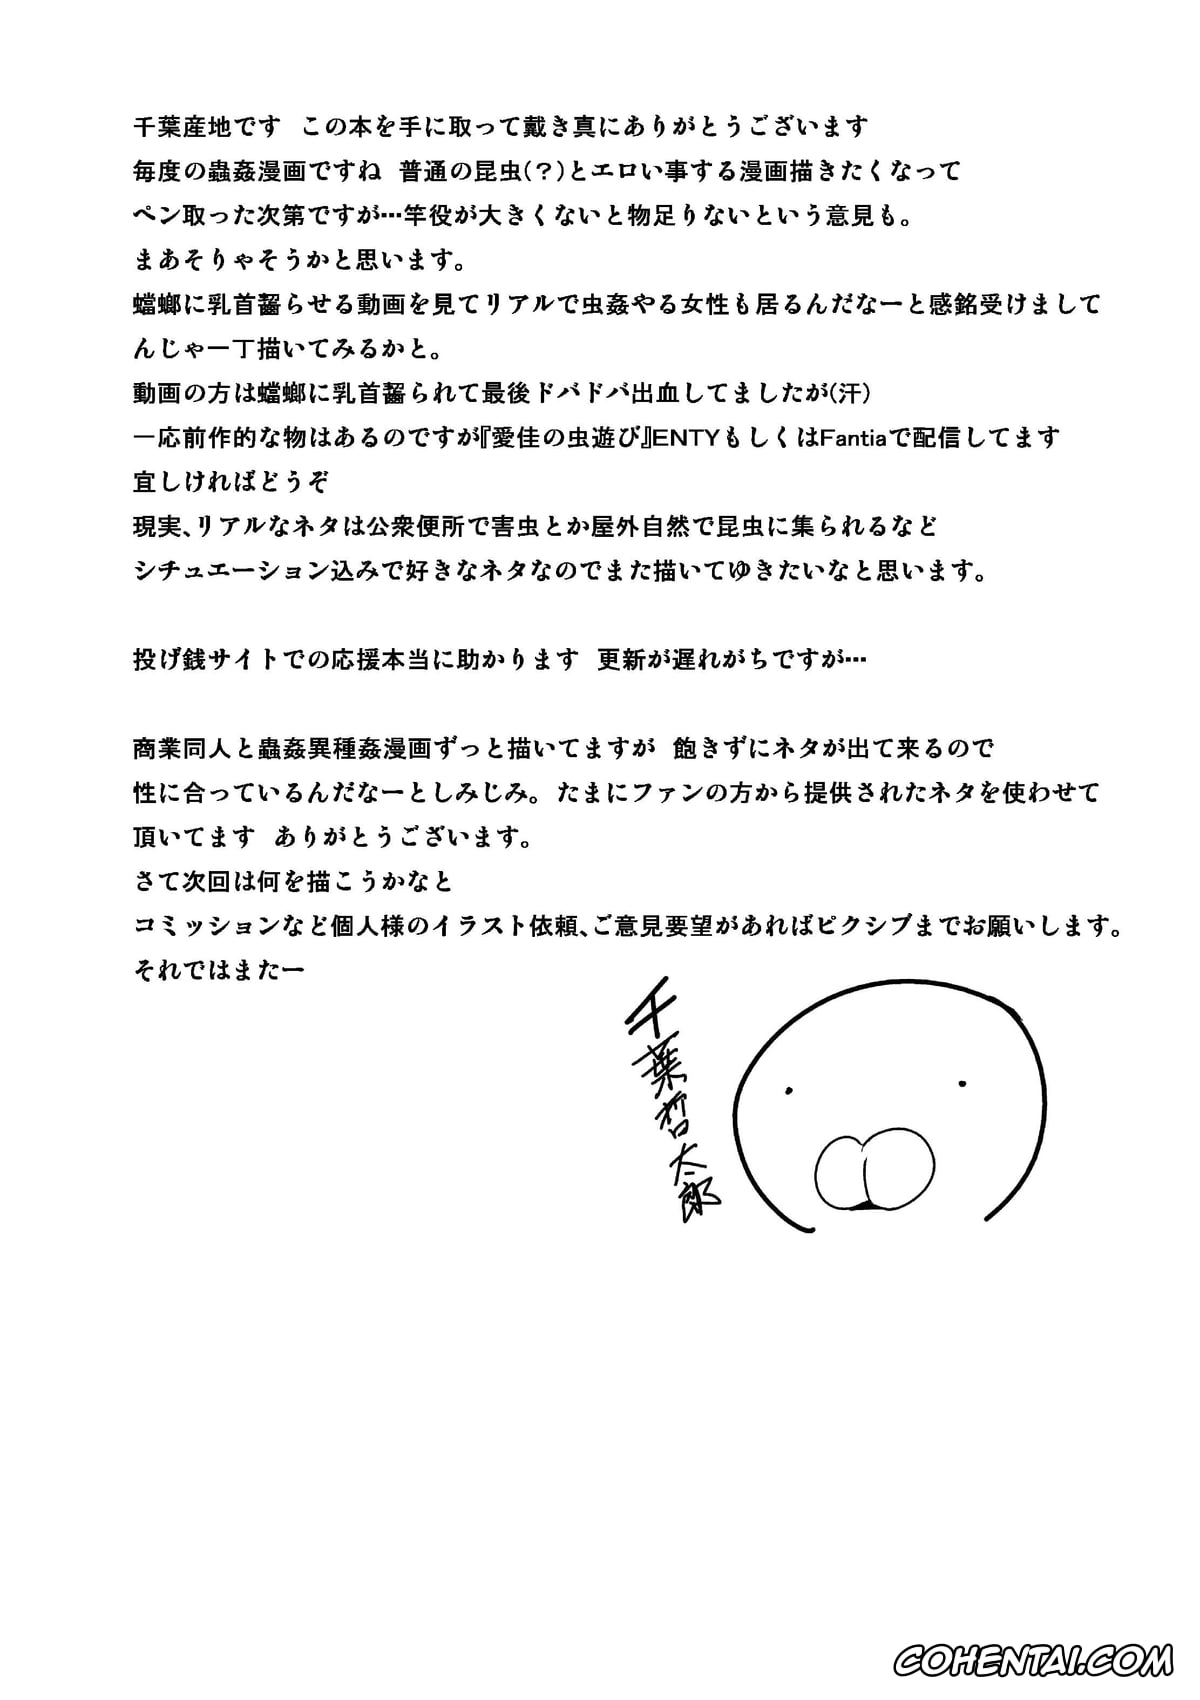 千葉産地です　この本を手に取って戴き真にありがとうございます
毎度の蟲姦漫画ですね　普通の昆虫(？)とエロい事する漫画描きたくなって
ペン取った次第ですが…竿役が大きくないと物足りないという意見も。
まあそりゃそうかと思います。
蟷螂に乳首齧らせる動画を見てリアルで虫姦やる女性も居るんだなーと感銘受けまして
んじゃ一丁描いてみるかと。
動画の方は蟷螂に乳首齧られて最後ドバドバ出血してましたが(汗)
一応前作的な物はあるのですが『愛佳の虫遊び』ENTYもしくはFantiaで配信してます
宜しければどうぞ
現実、リアルなネタは公衆便所で害虫とか屋外自然で昆虫に集られるなど
シチュエーション込みで好きなネタなのでまた描いてゆきたいなと思います。
投げ銭サイトでの応援本当に助かります　更新が遅れがちですが…
商業同人と蟲姦異種姦漫画ずっと描いてますが　飽きずにネタが出て来るので
性に合っているんだなーとしみじみ。たまにファンの方から提供されたネタを使わせて
頂いてます　ありがとうございます。
さて次回は何を描こうかなと
コミッションなど個人様のイラスト依頼、ご意見要望があればピクシブまでお願いします。
それではまたー
千葉哲太郎
COHENTAI.COM